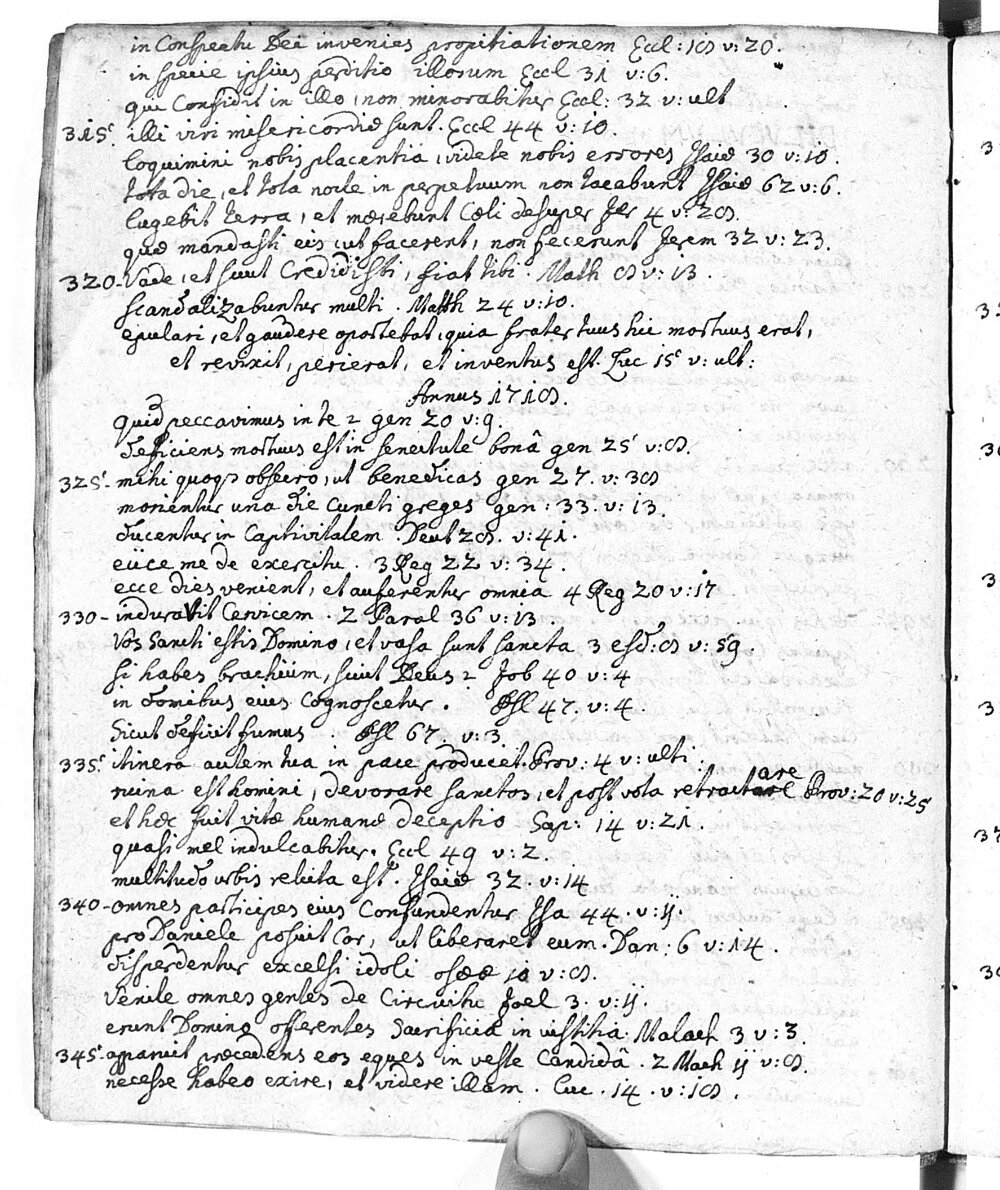 in Conspectu Dei invenies propitiationem Eccl: 18 v: 20.
in specie ipsius perditio illorum Eccl 31 v: 6.
qui Confidit in illo, non minorabitur Eccl: 32 v: ult
315. illi viri misericordiæ sunt. Eccl 44 v: 10.
loquimini nobis placentia, videte nobis errores Isaiæ 30 v: 10.
tota die, et tota nocte in perpetuum non tacebunt Isaiæ 62 v: 6.
lugebit terra, et mœrebunt Cœli desuper Jer 4 v: 28.
quæ mandasti eis ut facerent, non fecerunt Jerem 32 v: 23.
320- Vade, et sicut Credidisti, fiat tibi. Math 8 v: 13.
scandalizabuntur multi. Matth 24 v: 10.
epulari, et gaudere oportebat, quia frater tuus hic mortuus erat,
et revixit, perierat, et inventus est. Luc 15 v: ult:
Annus 1718.
quid peccavimus in te? gen 20 v: 9.
deficiens mortuus est in senectute bonâ gen 25 v: 8.
325. mihi quoqȝ obsecro, ut benedicas gen 27. v: 38
morientur una die Cuncti greges gen: 33. v: 13.
ducentur in Captivitatem. Deut 28. v: 41.
eiice me de exercitu. 3 Reg 22 v: 34.
ecce dies venient, et auferentur omnia 4 Reg 20 v: 17
330- induravit Cervicem. 2 Paral 36 v: 13.
Vos Sancti estis Domino, et vasa sunt sancta 3 esd: 8 v: 59.
si habes brachium, sicut Deus? Job 40 v: 4
in domibus eius Cognoscetur. Psl 47. v: 4.
Sicut deficit fumus. Psl 67. v: 3.
335. itinera autem tua in pace producet. Prov: 4 v: ulti:
ruina est homini, devorare sanctos, et post vota retractare Prov: 20 v: 25
et hæc fuit vitæ humanæ deceptio Sap: 14 v: 21.
quasi mel indulcabitur. Eccl 49 v: 2.
multitudo urbis relicta est. Isaiæ 32. v: 14
340- omnes participes eius Confundentur Isa 44. v: ij.
pro Daniele posuit Cor, ut liberaret eum. Dan: 6 v: 14.
disperdentur excelsi idoli oseæ 10 v: 8.
Venite omnes gentes de Circuitu Joel 3. v: ij.
erunt Domino offerentes Sacrificia in iustitia. Malach 3 v: 3.
345. apparuit præcedens eos eques in veste Candidâ. 2 Mach ij v: 8.
necesse habeo exire, et videre illam. Luc. 14. v: 18.